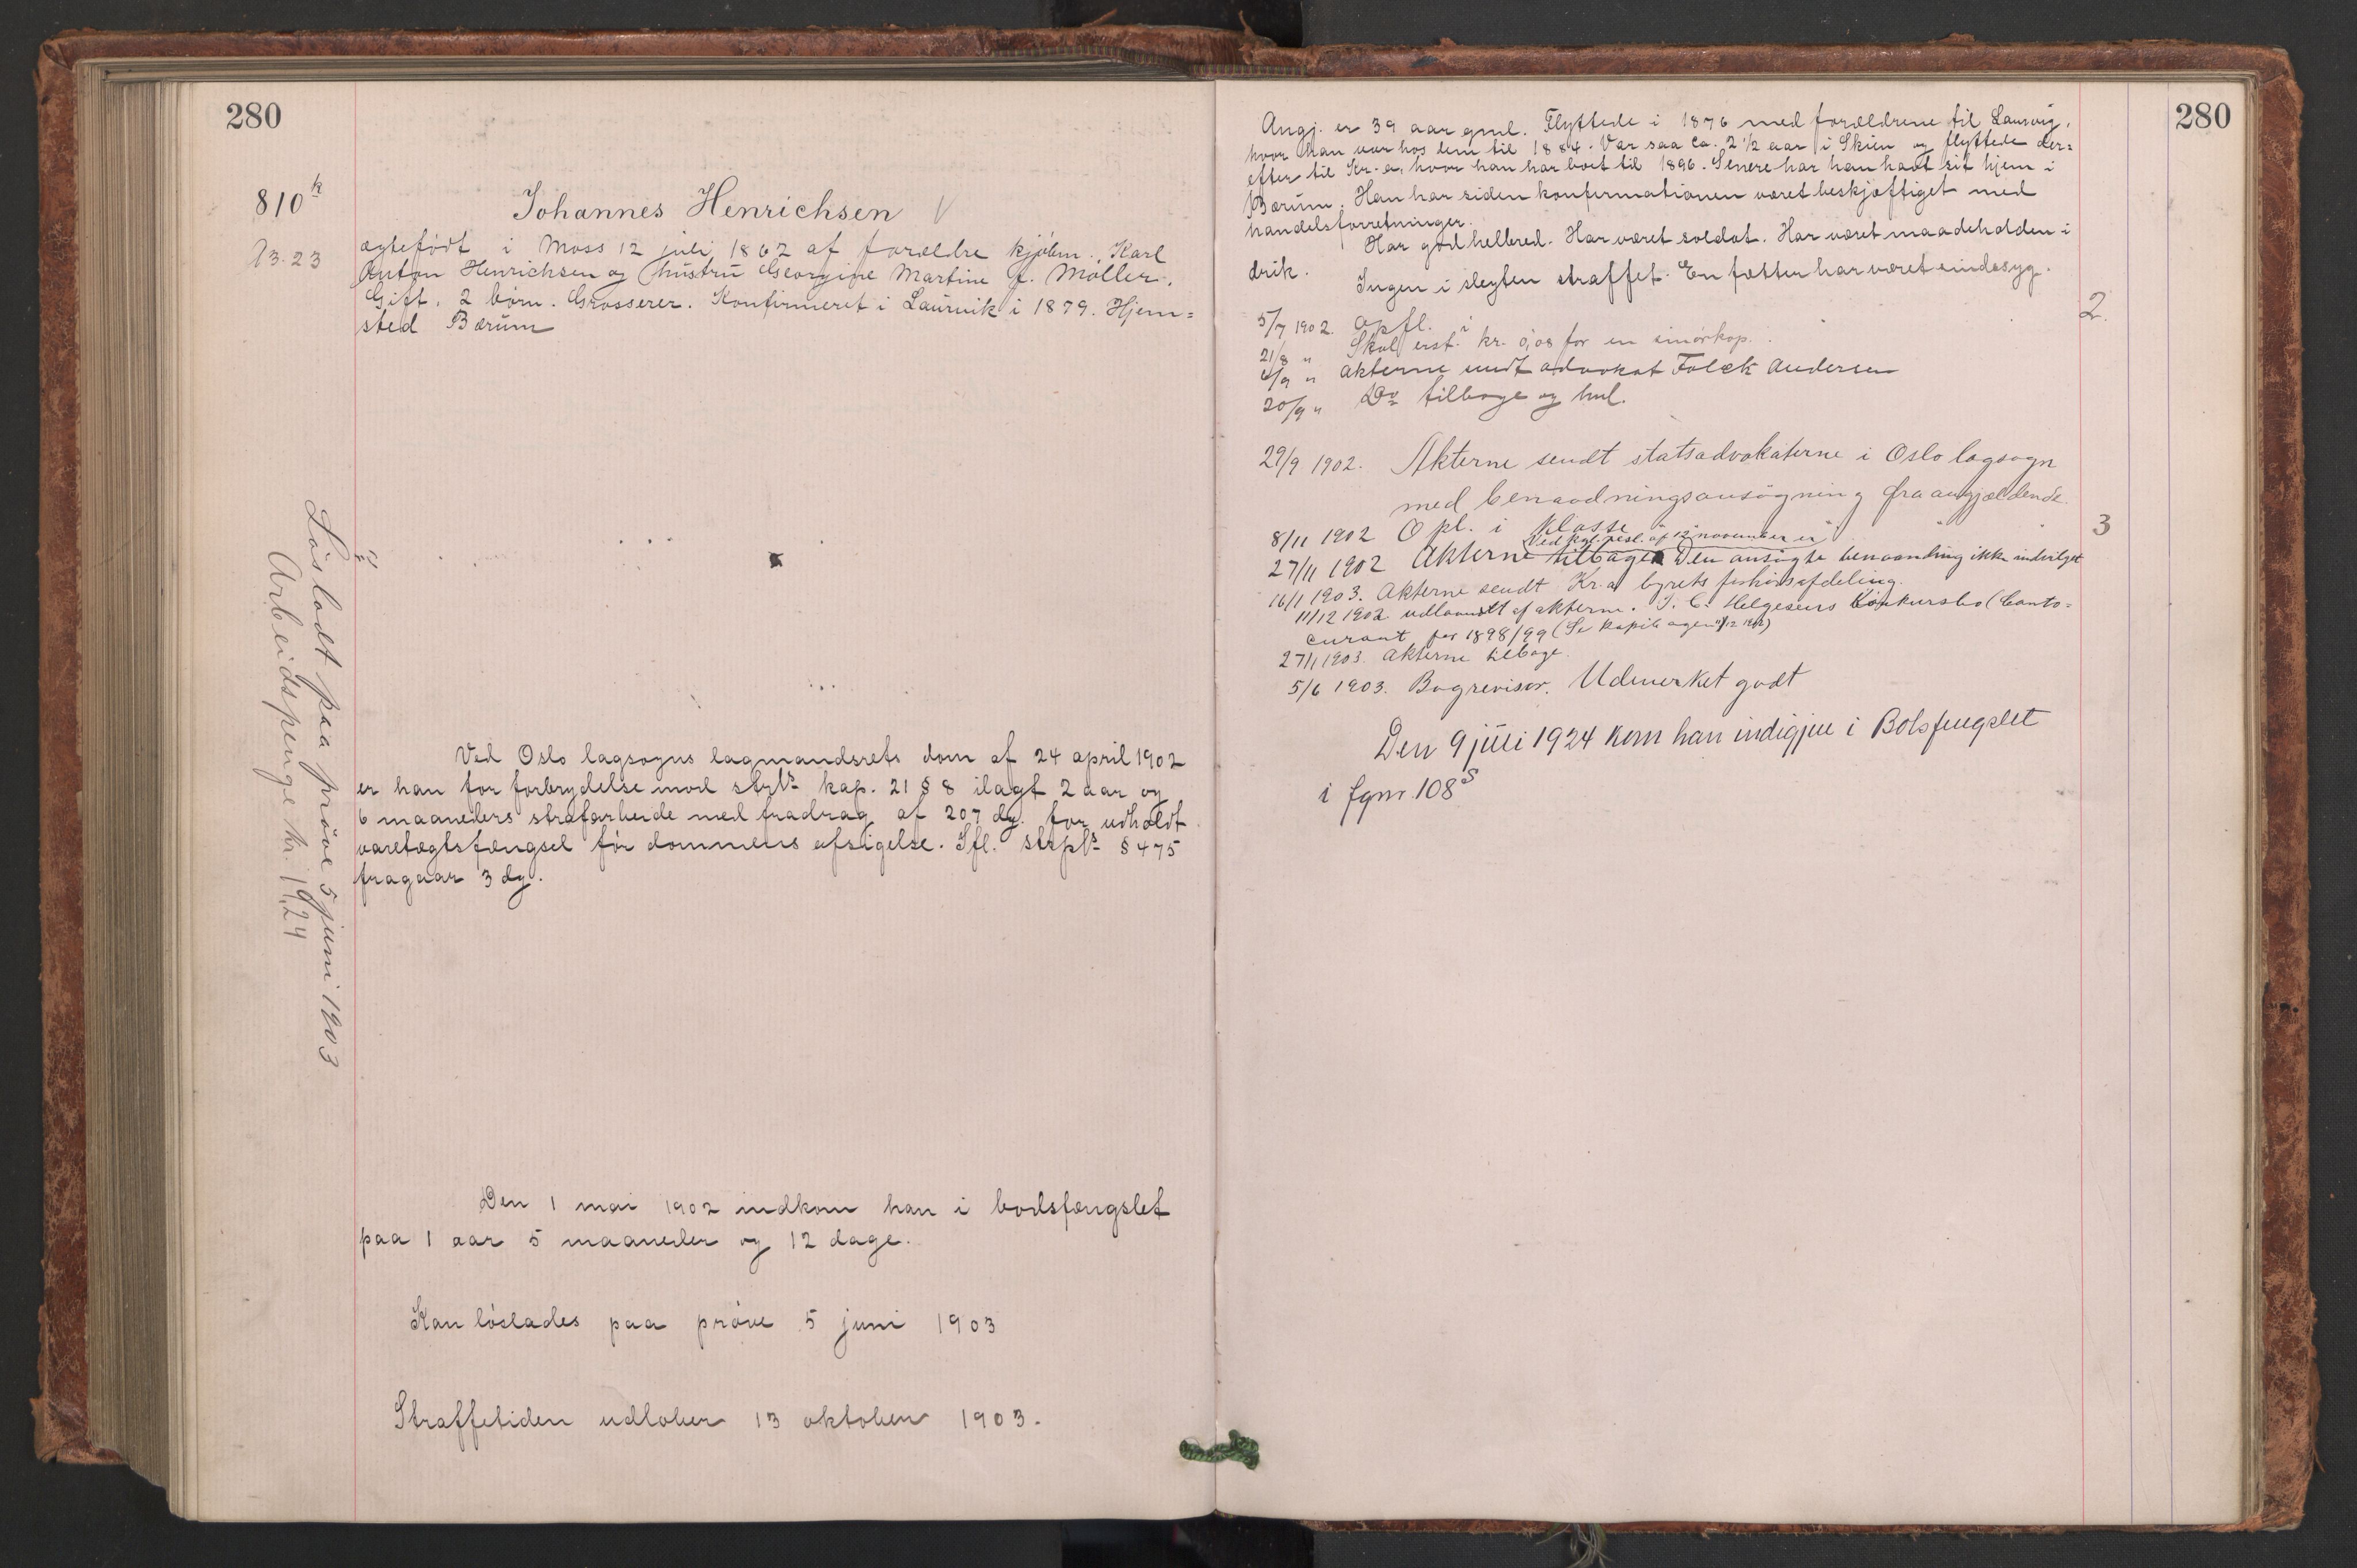 280
810 k
13.23
Johannes Henrichsen V
ægtefödt i Moss 12 juli 1862 af forældre kjöbm. Karl
Anton Henrichsen og hustru Georgine Martine f. Möller.
Gift, 2 börn. Grosserer. Konfirmeret i Laurvik i 1879. Hjem=
sted Bærum
Löslodt paa pröve 5 juni 1903
Arbeidspenge kr. 19,24
Ved Oslo lagsogns lagmandsrets dom af 24 april 1902
er han for forbrydelse mod strl. kap. 21 § 8 ilagt 2 aar og
6 maaneders strafarbeide med fradrag af 207 dg. for udholdt
varetægtsfængsel för dommens afsigelse. Ifl. strpl. § 475
fragaar 3 dg.
Den 1 mai 1902 indkom han i bodsfængslet
paa 1 aar 5 maaneder og 12 dage.
Kan löslades paa pröve 5 juni 1903
Straffetiden udlöber 13 oktober 1903.
280
Angj. er 39 aar gml. Flyttede i 1876 med forældrene til Laurvig,
hvor han var hos dem til 1884. Var saa ca. 2 1/2 aar i Skien og flyttede der=
efter til Kr.a, hvor han har boet til 1896. Senere har han havt sit hjem i
Bærum. Han har siden konfirmationen været beskjæftiget med
handelsforretninger.
Har god helbred. Har været soldat. Har været maadeholden i
drik.
Ingen i slegten straffet. En fætter har været sindssyg.
2.
5/7 1902. Opfl. i
21/8 " Skal erst. kr. 0,08 for en smörkop.
6/9 " Akterne sendt advokat Falck Andersen
20/9 " Do tilbage og hnl.
29/9 1902. Akterne sendt statsadvokaterne i Oslo lagsogn
med benaadningsansögning fra angjældende.
8/11 1902 Opl. i klasse 3
Ved kgl. resl. af 12 november er
27/11 1902 Akterne tilbage. Den ansögte benaadning ikke indvilget
16/1 1903. Akterne sendt Kr.a byrets forhörsafdeling.
11/12 1902 udlaandt af akterne. J. C. Helgesens konkursbo (Conto=
curant for 1898/99 (Se 11/12 1902)
27/1 1903. Akterne tilbage.
5/6 1903. Bogrevisor. Udmerket godt
Den 9 juli 1924 kom han indigjen i Botsfengslet
i fgnr. 108 S